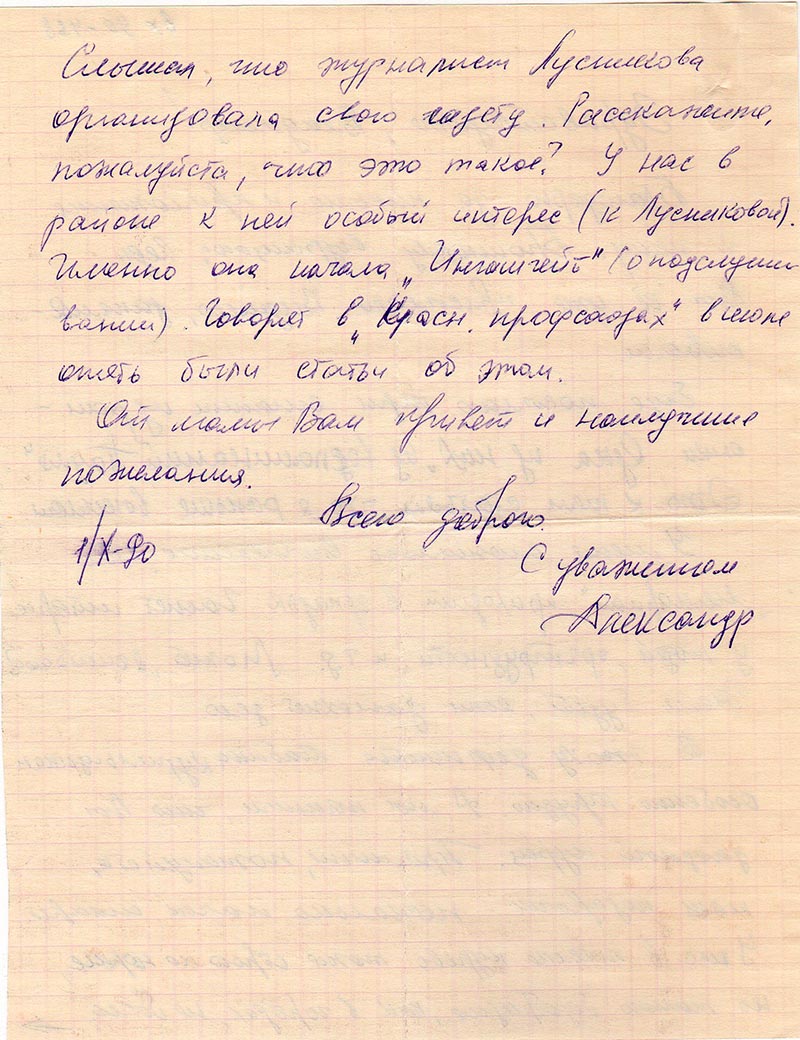 Слышал, что журналист Лусникова
организовала свою газету. Расскажите,
пожалуйста, что это такое? У нас в
районе к ней особый интерес (к Лусниковой).
Именно она начала „Ингашгейт" (о подслуши-
вании). Говорят в „Красн. профсоюзах" в июле
опять были статьи об этом.
От мамы Вам привет и наилучшие
пожелания.
Всего доброго.
1/X-90
С уважением
Александр